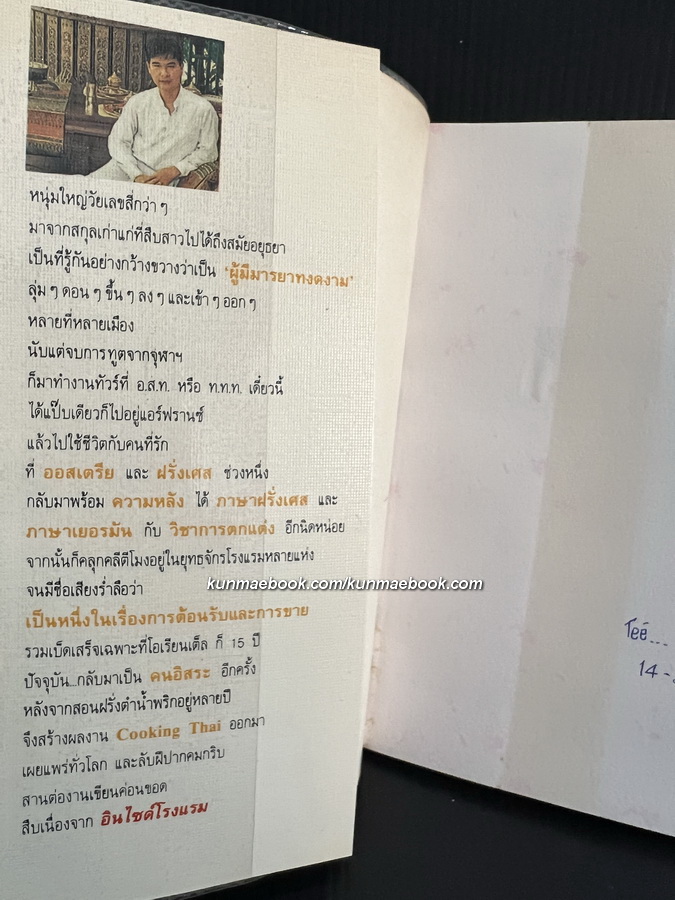 หนุ่มใหญ่วัยเลขสี่กว่า ๆ
มาจากสกุลเก่าแก่ที่สืบสาวไปได้ถึงสมัยอยุธยา
เป็นที่รู้กันอย่างกว้างขวางว่าเป็น ‘ผู้มีมารยาทงดงาม’
ลุ่ม ๆ ดอน ๆ ขึ้น ๆ ลง ๆ และเข้า ๆ ออก ๆ
หลายที่หลายเมือง
นับแต่จบการทูตจากจุฬาฯ
ก็มาทำงานทัวร์ที่ อ.ส.ท. หรือ ท.ท.ท. เดี๋ยวนี้
ได้แป๊บเดียวก็ไปอยู่แอร์ฟรานซ์
แล้วไปใช้ชีวิตกับคนที่รัก
ที่ ออสเตรีย และ ฝรั่งเศส ช่วงหนึ่ง
กลับมาพร้อม ความหลัง ได้ ภาษาฝรั่งเศส และ
ภาษาเยอรมัน กับ วิชาการตกแต่ง อีกนิดหน่อย
จากนั้นก็คลุกคลีตีโมงอยู่ในยุทธจักรโรงแรมหลายแห่ง
จนมีชื่อเสียงร่ำลือว่า
kunmaebook.com/kunmaebook.com
เป็นหนึ่งในเรื่องการต้อนรับและการขาย
รวมเบ็ดเสร็จเฉพาะที่โอเรียนเต็ล ก็ 15 ปี
ปัจจุบัน...กลับมาเป็น คนอิสระ อีกครั้ง
หลังจากสอนฝรั่งตำน้ำพริกอยู่หลายปี
จึงสร้างผลงาน Cooking Thai ออกมา
เผยแพร่ทั่วโลก และลับฝีปากคมกริบ
สานต่องานเขียนค่อนขอด
สืบเนื่องจาก อินไซด์โรงแรม
Teé...
14 -